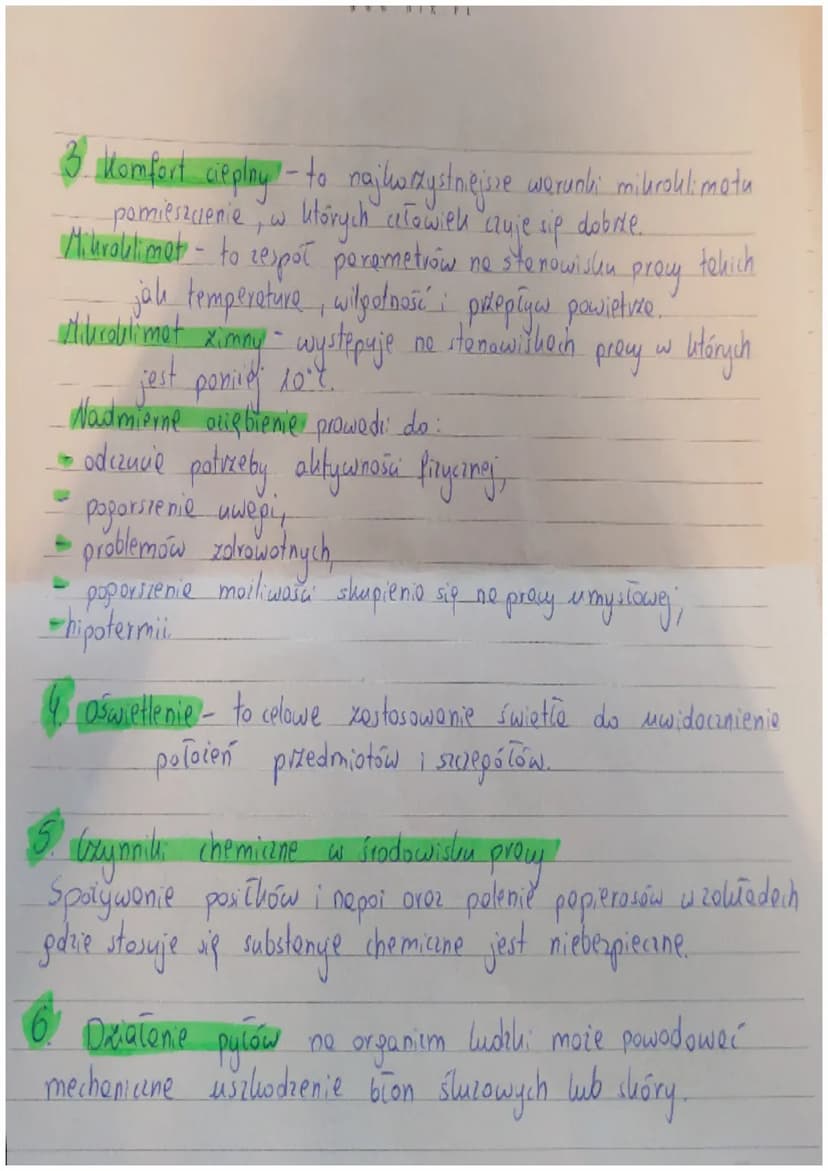 3. Komfort cieplny - to najkorzystniejsze warunki mikroklimatu
pomieszczenie, w których człowiek czuje się dobrze.
Mikroklimat - to zespół parametrów na stanowisku pracy takich
jak temperatura, wilgotność i przepływ powietrza.
Mikroklimat zimny - występuje na stanowiskach pracy w których
jest poniżej 10°C.
Nadmierne oziębienie prowadzi do:
- odczucie potrzeby aktywności fizycznej,
- pogorszenie uwagi,
- problemów zdrowotnych,
- pogorszenie możliwości skupienia się na pracy umysłowej,
- hipotermii.
4. Oświetlenie - to celowe zastosowanie światła do uwidocznienia
położeń przedmiotów i szczegółów.
5. Czynniki chemiczne w środowisku pracy
Spożywanie posiłków i napoi oraz palenie papierosów w zakładach
gdzie stosuje się substancje chemiczne jest niebezpieczne.
6. Działanie pyłów na organizm ludzki może powodować
mechaniczne uszkodzenie błon śluzowych lub skóry.